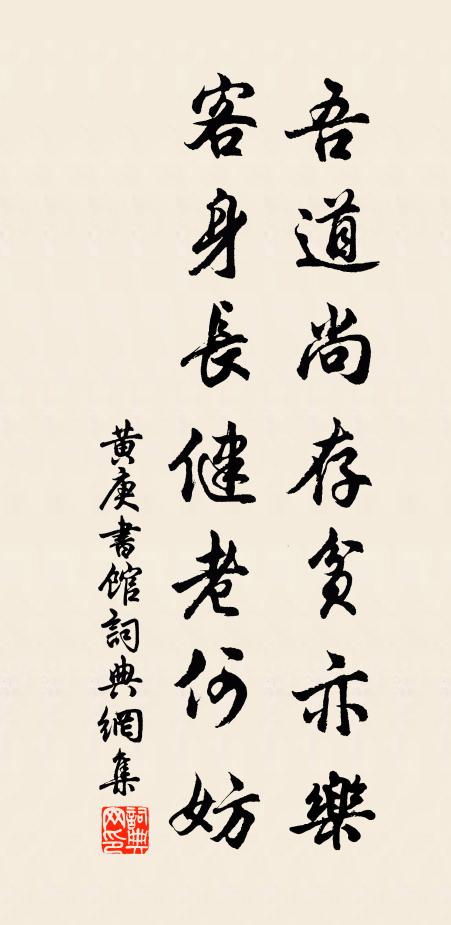 吾道尚存貧亦樂
客身長健老何妨
黃庚書館詞典網集
詞典网印